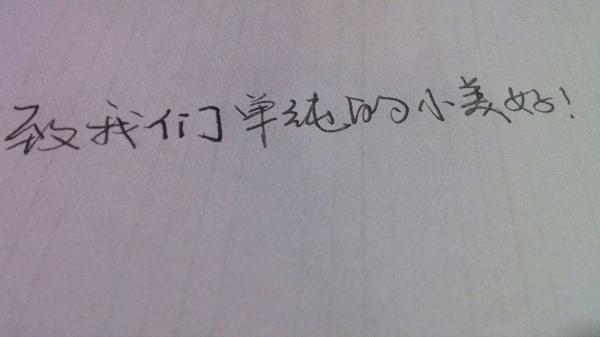 致我们单纯的小美好!